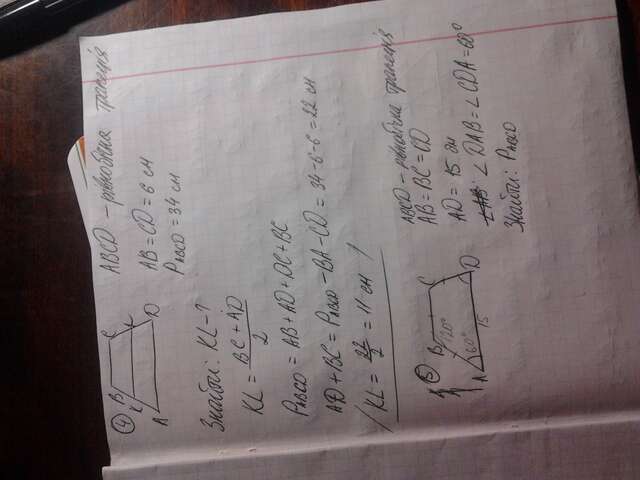 ④
B
C
K
L
A
D
ABCD – рівнобічна трапеція
AB = CD = 6 см
PABCD = 34 см
Знайти: KL – ?
KL = BC + AD / 2
PABCD = AB + AD + DC + BC
AD + BC = PABCD – BA – CD = 34 – 6 – 6 = 22 см
KL = 22/2 = 11 см
⑤
B
C
120°
60°
A
15
D
ABCD – рівнобічна трапеція
AB = BC = CD
AD = 15 см
∠DAB = ∠CDA = 60°
Знайти: PABCD